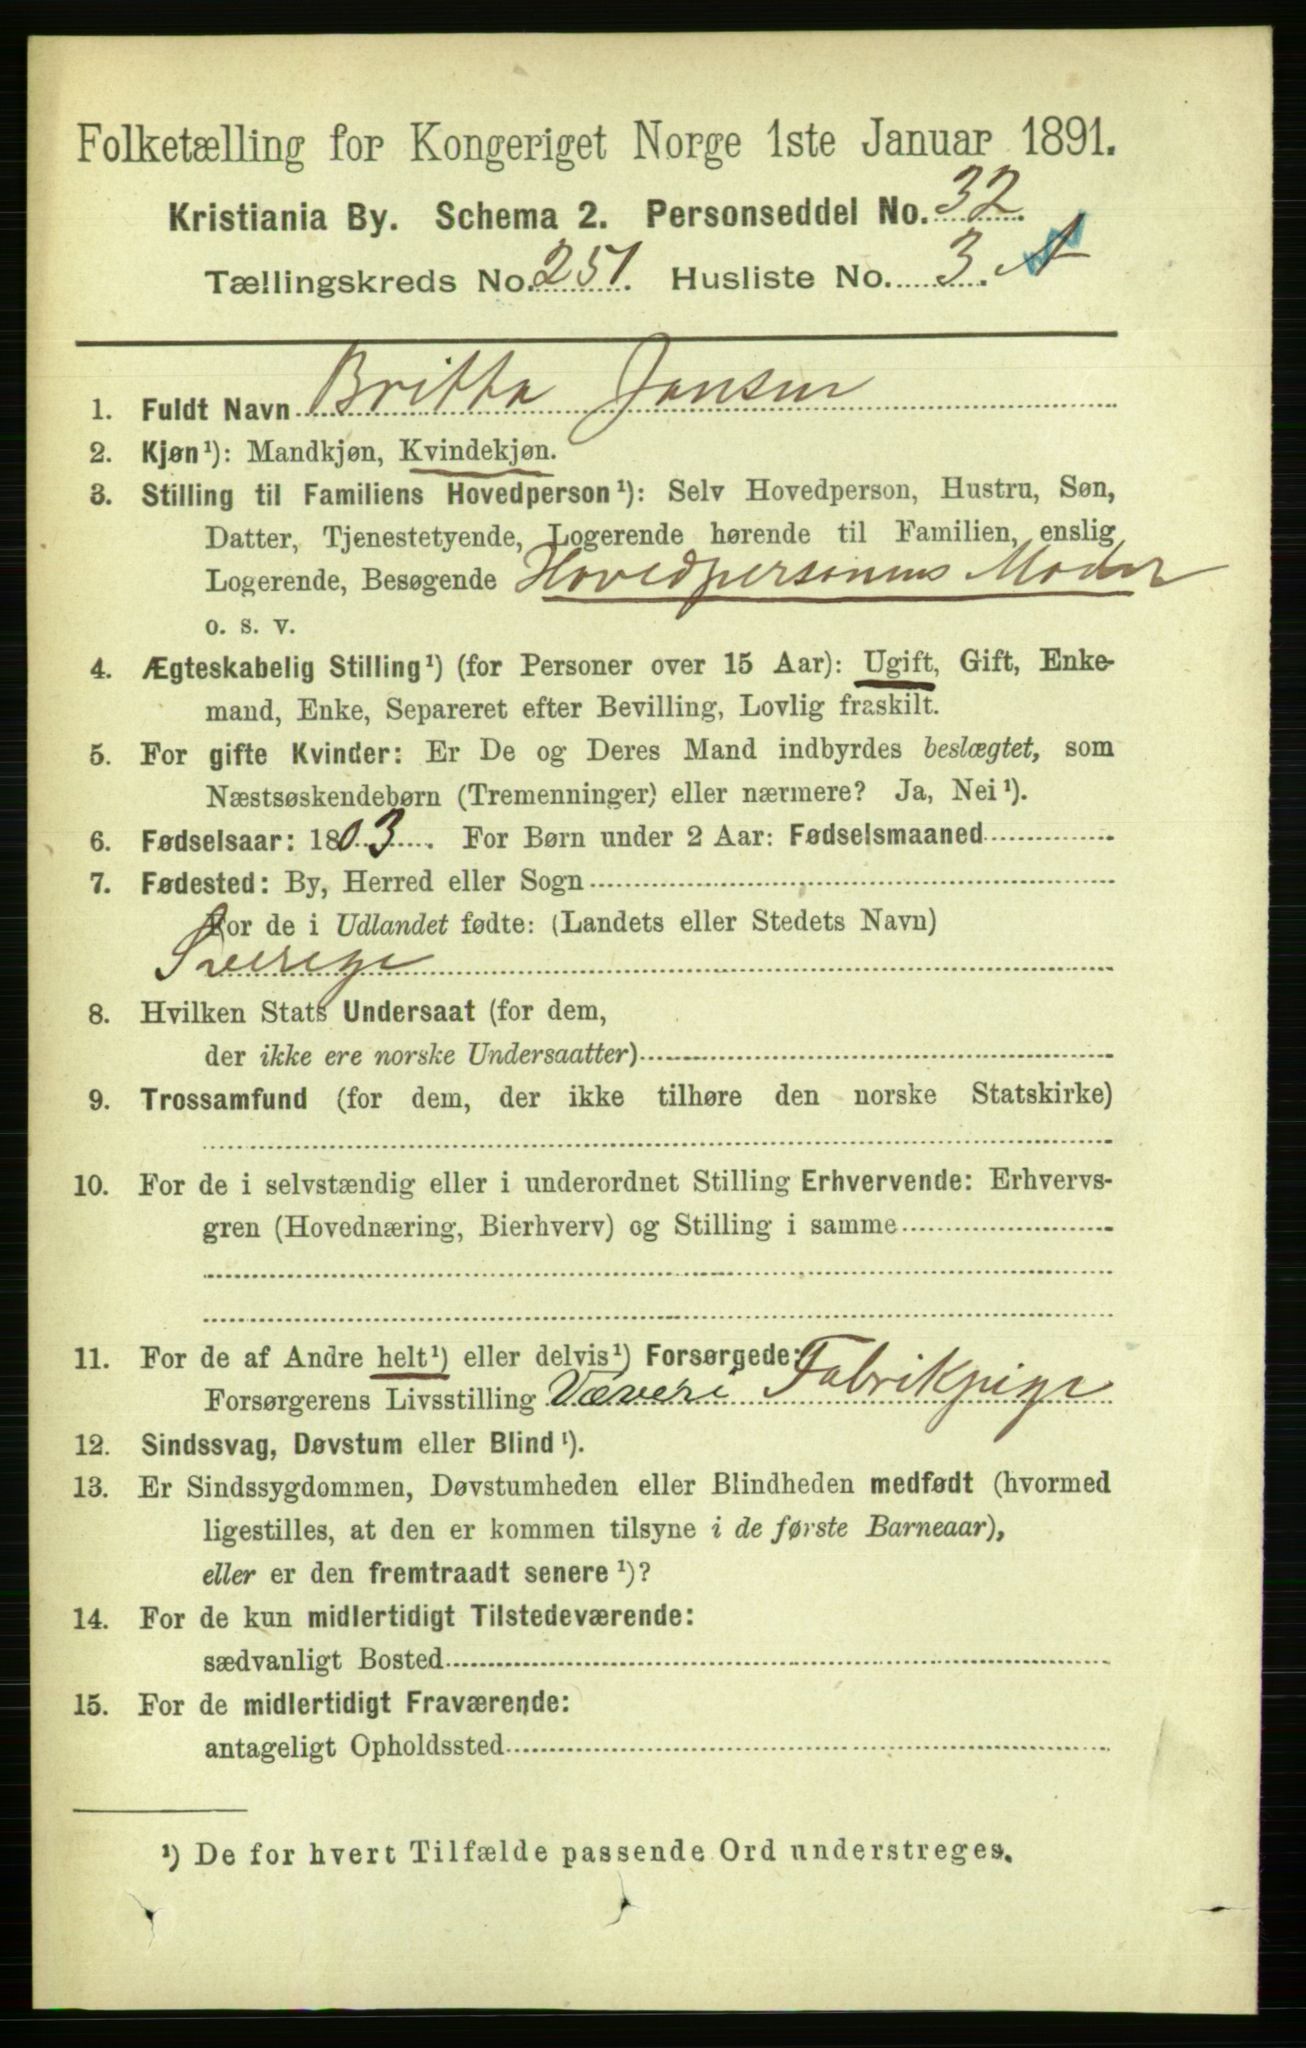 Folketælling for Kongeriget Norge 1ste Januar 1891.
Kristiania By. Schema 2. Personseddel No. 32.
Tællingskreds No. 251. Husliste No. 3. A
1. Fuldt Navn Britta Jansen
2. Kjøn ¹): Mandkjøn, Kvindekjøn.
3. Stilling til Familiens Hovedperson ¹): Selv Hovedperson, Hustru, Søn,
Datter, Tjenestetyende, Logerende hørende til Familien, enslig
Logerende, Besøgende Hovedpersonens Moder
o. s. v.
4. Ægteskabelig Stilling ¹) (for Personer over 15 Aar): Ugift, Gift, Enke-
mand, Enke, Separeret efter Bevilling, Lovlig fraskilt.
5. For gifte Kvinder: Er De og Deres Mand indbyrdes beslægtet, som
Næstsøskendebørn (Tremenninger) eller nærmere? Ja, Nei ¹).
6. Fødselsaar: 1803. For Børn under 2 Aar: Fødselsmaaned
7. Fødested: By, Herred eller Sogn
For de i Udlandet fødte: (Landets eller Stedets Navn)
Sverige
8. Hvilken Stats Undersaat (for dem,
der ikke ere norske Undersaatter)
9. Trossamfund (for dem, der ikke tilhøre den norske Statskirke)
10. For de i selvstændig eller i underordnet Stilling Erhvervende: Erhvervs-
gren (Hovednæring, Bierhverv) og Stilling i samme
11. For de af Andre helt ¹) eller delvis ¹) Forsørgede:
Forsørgerens Livsstilling Væveri Fabrikpige
12. Sindssvag, Døvstum eller Blind ¹).
13. Er Sindssygdommen, Døvstumheden eller Blindheden medfødt (hvormed
ligestilles, at den er kommen tilsyne i de første Barneaar),
eller er den fremtraadt senere ¹)?
14. For de kun midlertidigt Tilstedeværende:
sædvanligt Bosted
15. For de midlertidigt Fraværende:
antageligt Opholdssted
¹) De for hvert Tilfælde passende Ord understreges.